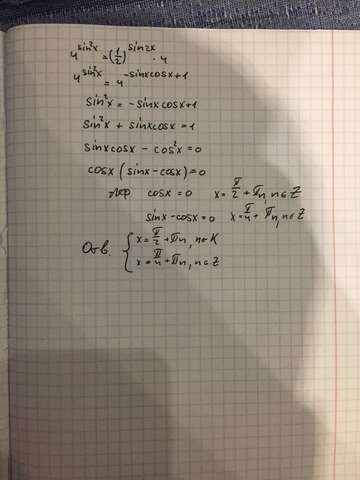 4^{sin²x} = (1/2)^{sin2x} · 4
4^{sin²x} = 4^{-sinxcosx+1}
sin²x = -sinxcosx+1
sin²x + sinxcosx = 1
sinxcosx - cos²x = 0
cosx (sinx - cosx) = 0
cosx = 0 x = π/2 + πn, n∈Z
sinx - cosx = 0 x = π/4 + πn, n∈Z
Отв. { x = π/2 + πn, n∈K
x = π/4 + πn, n∈Z